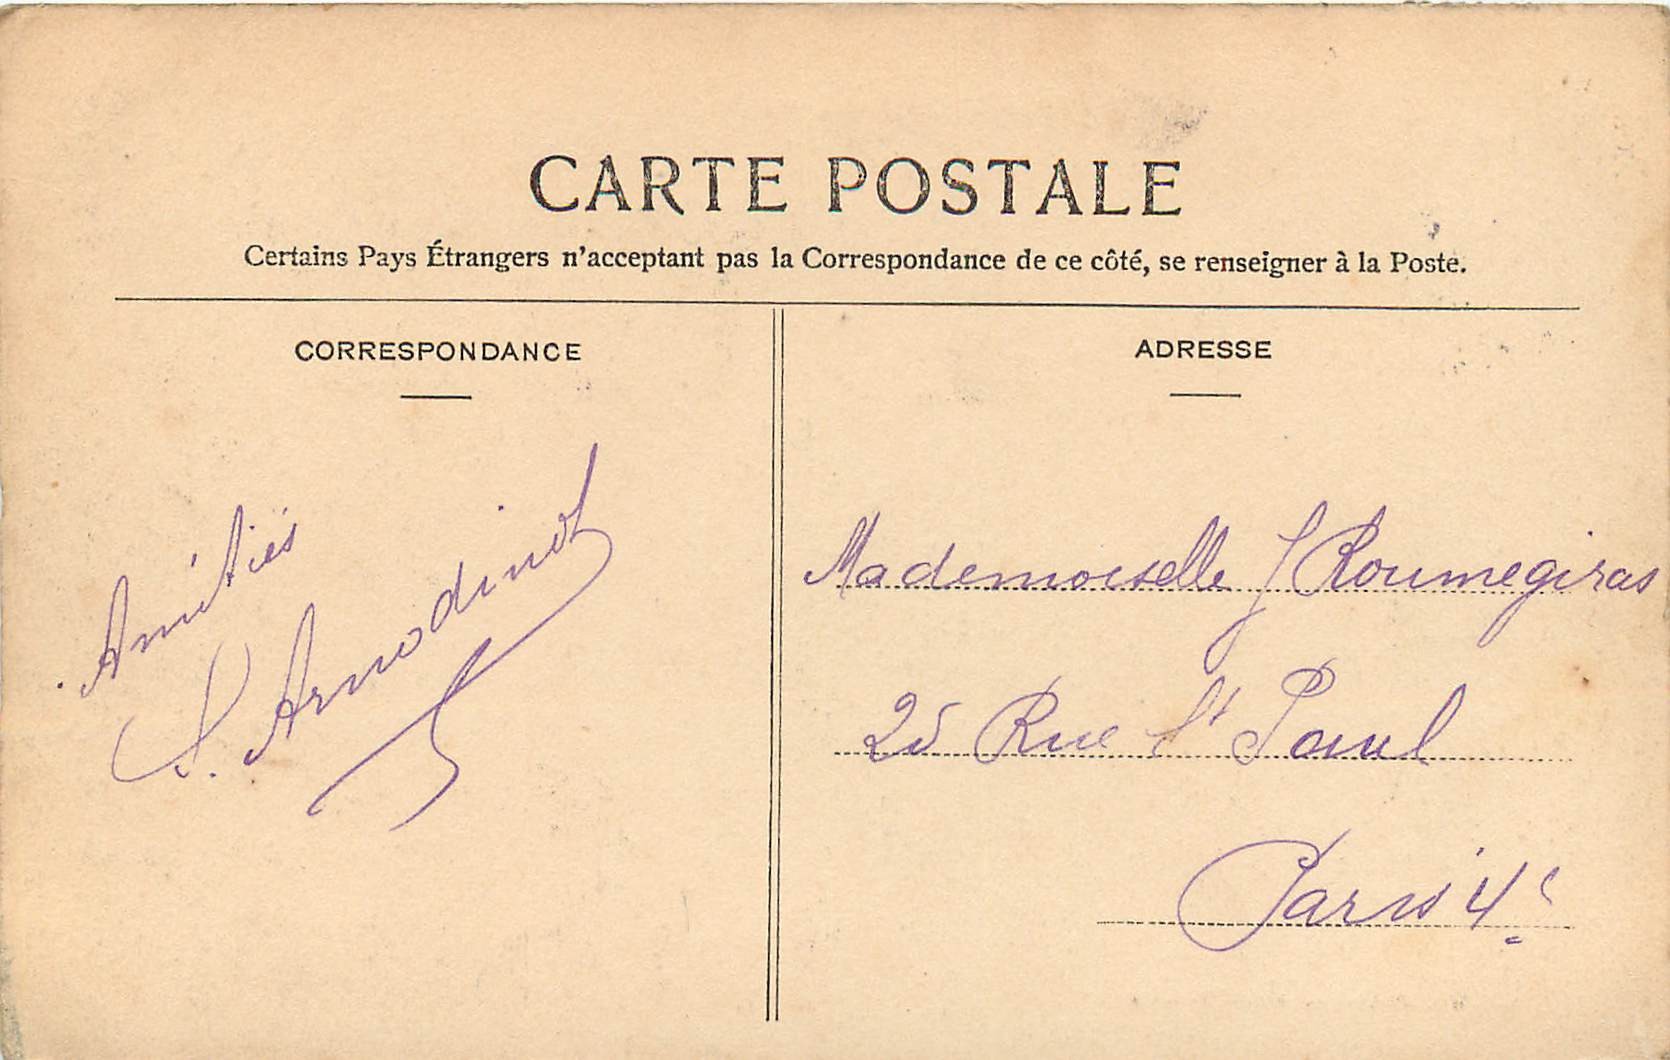 CARTE POSTALE
Certains Pays Étrangers n'acceptant pas la Correspondance de ce côté, se renseigner à la Poste.
CORRESPONDANCE
Amitiés
S. Arnodinot
ADRESSE
Mademoiselle J Roumegiras
25 Rue St Paul
Paris 4e